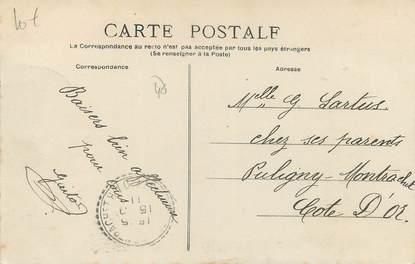 lot
CARTE POSTALE
La Correspondance au recto n'est pas acceptée par tous les pays étrangers
(Se renseigner à la Poste)
Correspondance
Adresse
Baisers bien affectueux
pour tous
Melle G. Lartus
chez ses parents
Puligny-Montrachet
Cote D'Or.